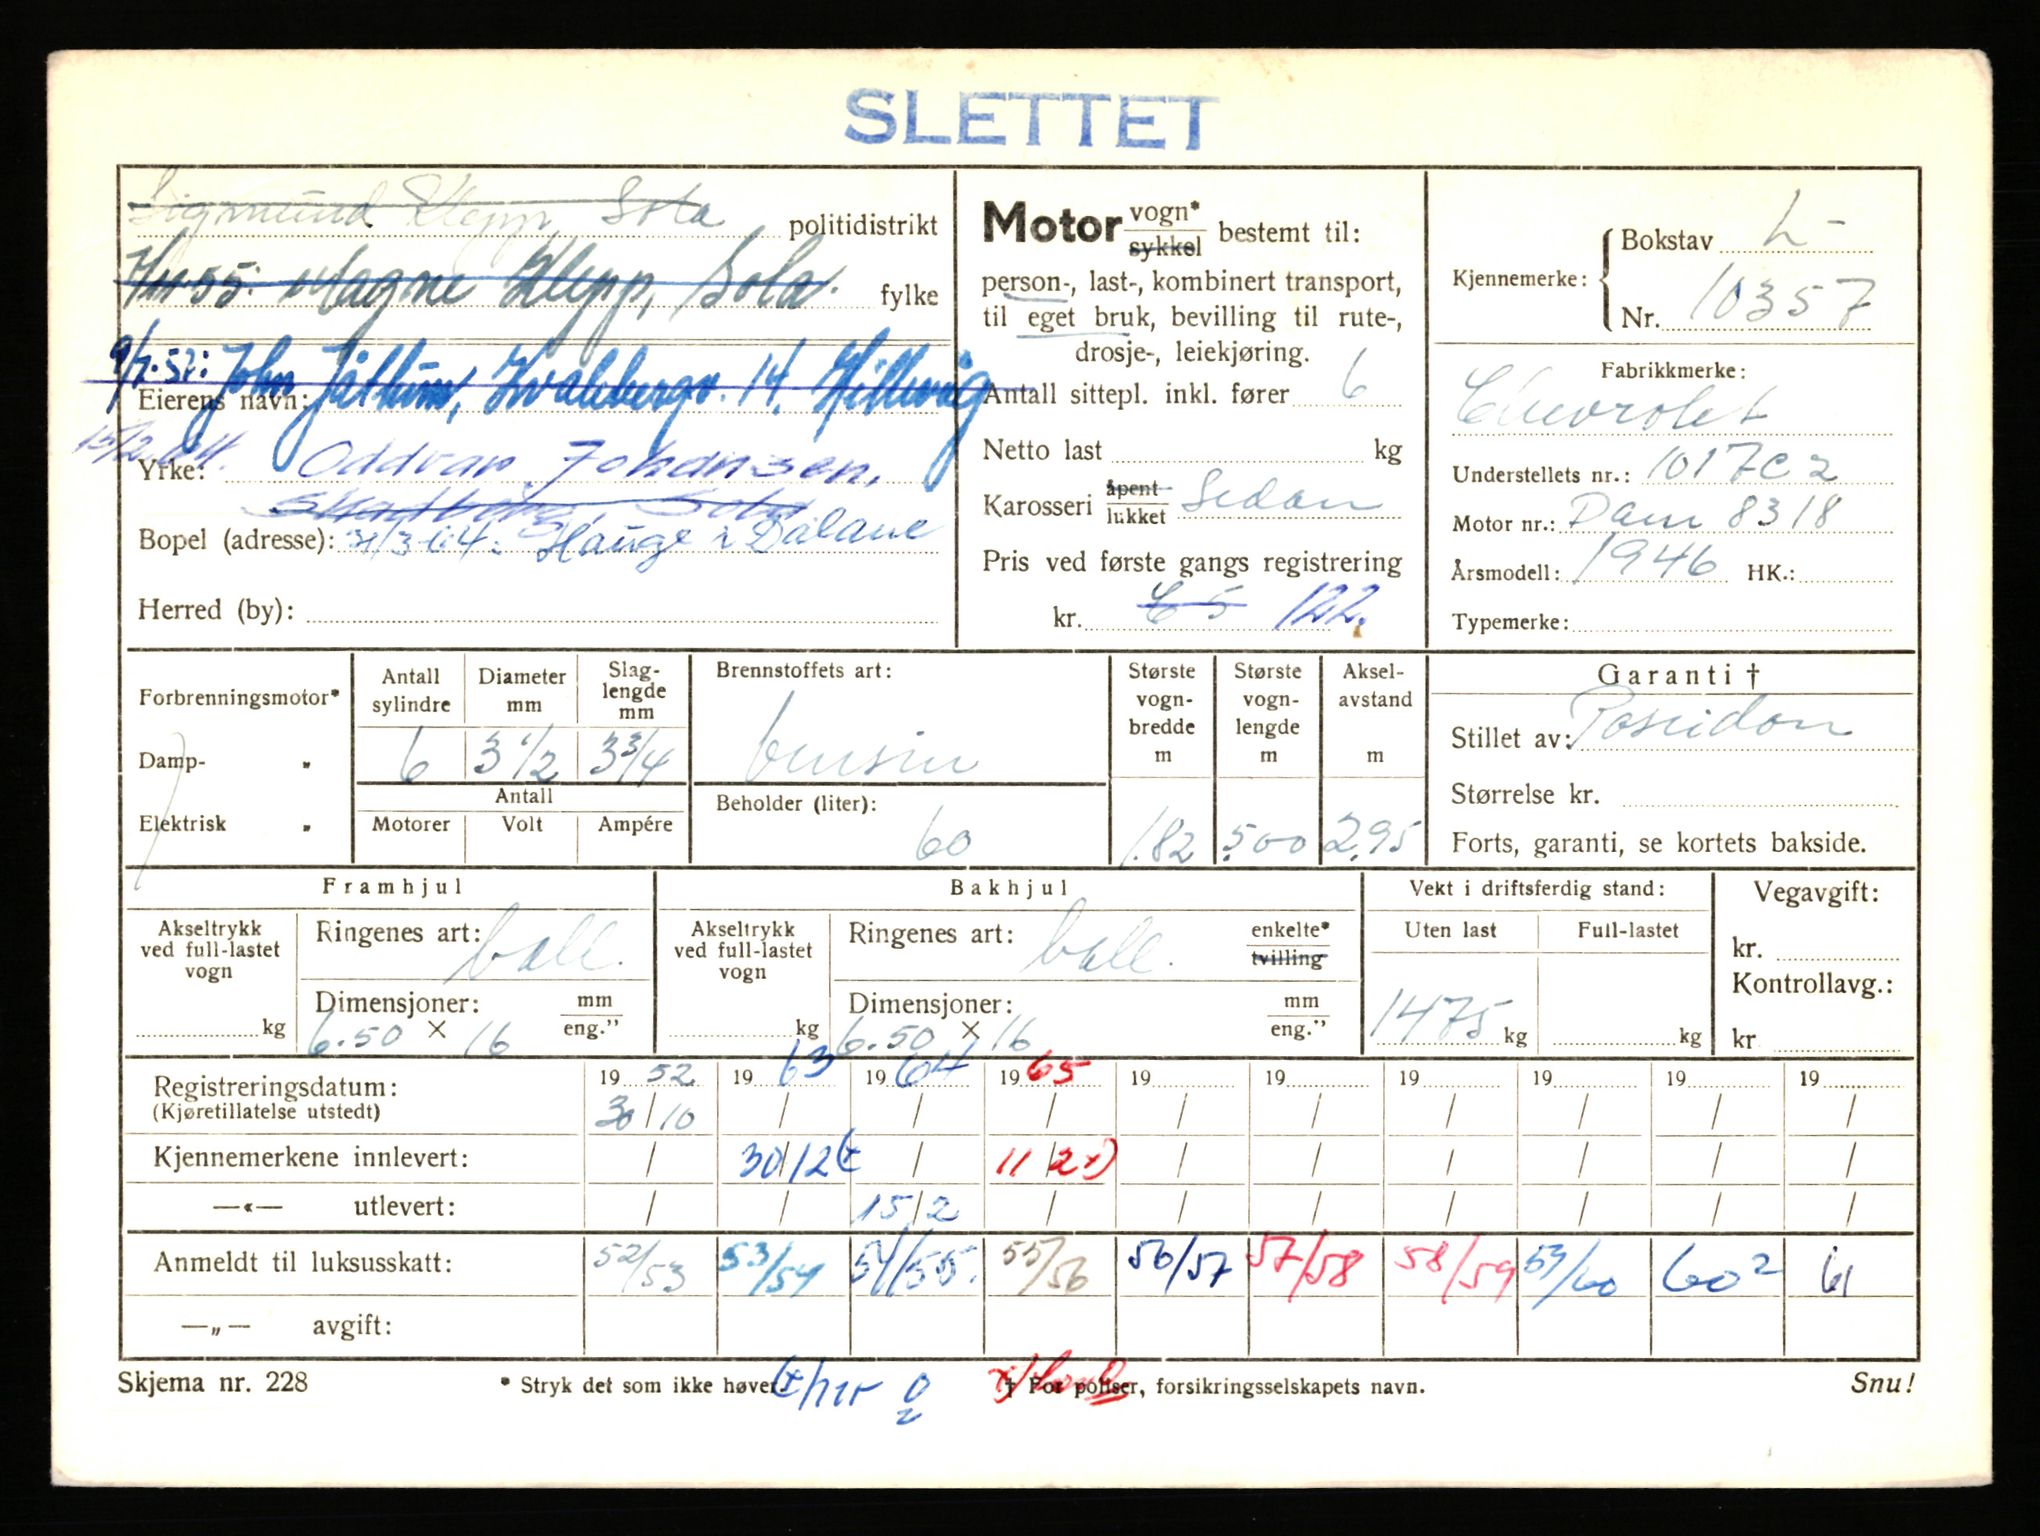 SLETTET
Sigmund Klepp, Sola politidistrikt
Magne Klepp, Sola. fylke
9/7-57: John Jåttun, Kvalebergv. 14. Hillevåg
Eierens navn:
15/2-64.
Yrke: Oddvar Johansen,
Sola
Bopel (adresse): 31/3-64: Hauge i Dalane
Herred (by):
Motor vogn* sykkel bestemt til:
person-, last-, kombinert transport,
til eget bruk, bevilling til rute-,
drosje-, leiekjøring.
Antall sittepl. inkl. fører 6
Netto last kg
Karosseri åpent lukket Sedan
Pris ved første gangs registrering
kr. 65 122.
Kjennemerke: { Bokstav L-
Nr. 10357
Fabrikkmerke:
Chevrolet
Understellets nr.: 1017C2
Motor nr.: Dam 8318
Årsmodell: 1946 HK.:
Typemerke:
Forbrenningsmotor*
Damp- "
Elektrisk "
Antall sylindre
6
Diameter mm
3 1/2
Slaglengde mm
3 3/4
Antall
Motorer Volt Ampére
Brennstoffets art:
bensin
Beholder (liter):
60
Største vognbredde m
1.82
Største vognlengde m
5.00
Akselavstand m
2.95
Garanti †
Stillet av: Poseidon
Størrelse kr.
Forts, garanti, se kortets bakside.
Framhjul
Akseltrykk ved full-lastet vogn
kg
Ringenes art: ball.
Dimensjoner: mm eng."
6.50 × 16
Bakhjul
Akseltrykk ved full-lastet vogn
kg
Ringenes art: ball. enkelte* tvilling
Dimensjoner: mm eng."
6.50 × 16
Vekt i driftsferdig stand:
Uten last Full-lastet
1475 kg kg
Vegavgift:
kr.
Kontrollavg.:
kr
Registreringsdatum: 19 52 19 63 19 64 19 65 19 19 19 19 19 19
(Kjøretillatelse utstedt) 30/10 / / / / / / / / /
Kjennemerkene innlevert: / 30/12 (x / 11/2 x) / / / / / /
—«— utlevert: / / 15/2 / / / / / / /
Anmeldt til luksusskatt: 52/53 53/54 54/55. 55/56 56/57 57/58 58/59 59/60 60² 61
—„— avgift:
Skjema nr. 228 * Stryk det som ikke høver. † For poliser, forsikringsselskapets navn. Snu!